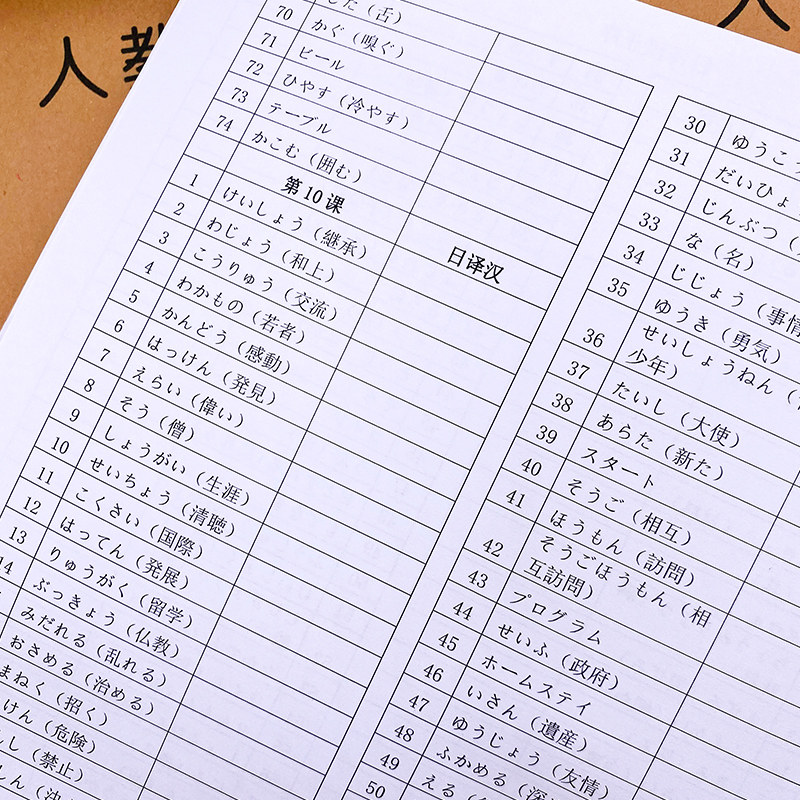 人教
人
した（舌）
70 かぐ（嗅ぐ）
71 ビール
72 ひやす（冷やす）
73 テーブル
74 かこむ（囲む）
第10课 日译汉
1 けいしょう（継承）
2 わじょう（和上）
3 こうりゅう（交流）
4 わかもの（若者）
5 かんどう（感動）
6 はっけん（発見）
7 えらい（偉い）
8 そう（僧）
9 しょうがい（生涯）
10 せいちょう（清聴）
11 こくさい（国際）
12 はってん（発展）
13 りゅうがく（留学）
14 ぶっきょう（仏教）
みだれる（乱れる）
おさめる（治める）
まねく（招く）
けん（危険）
し（禁止）
しん（
30 ゆうこ
31 だいひょ
32 じんぶつ（
33 な（名）
34 じじょう（事情
35 ゆうき（勇気）
36 せいしょうねん（
少年）
37 たいし（大使）
38 あらた（新た）
39 スタート
40 そうご（相互）
41 ほうもん（訪問）
42 そうごほうもん（相
互訪問）
43 プログラム
44 せいふ（政府）
45 ホームステイ
46 いさん（遺産）
47 ゆうじょう（友情）
48 ふかめる（深
49 える（
50